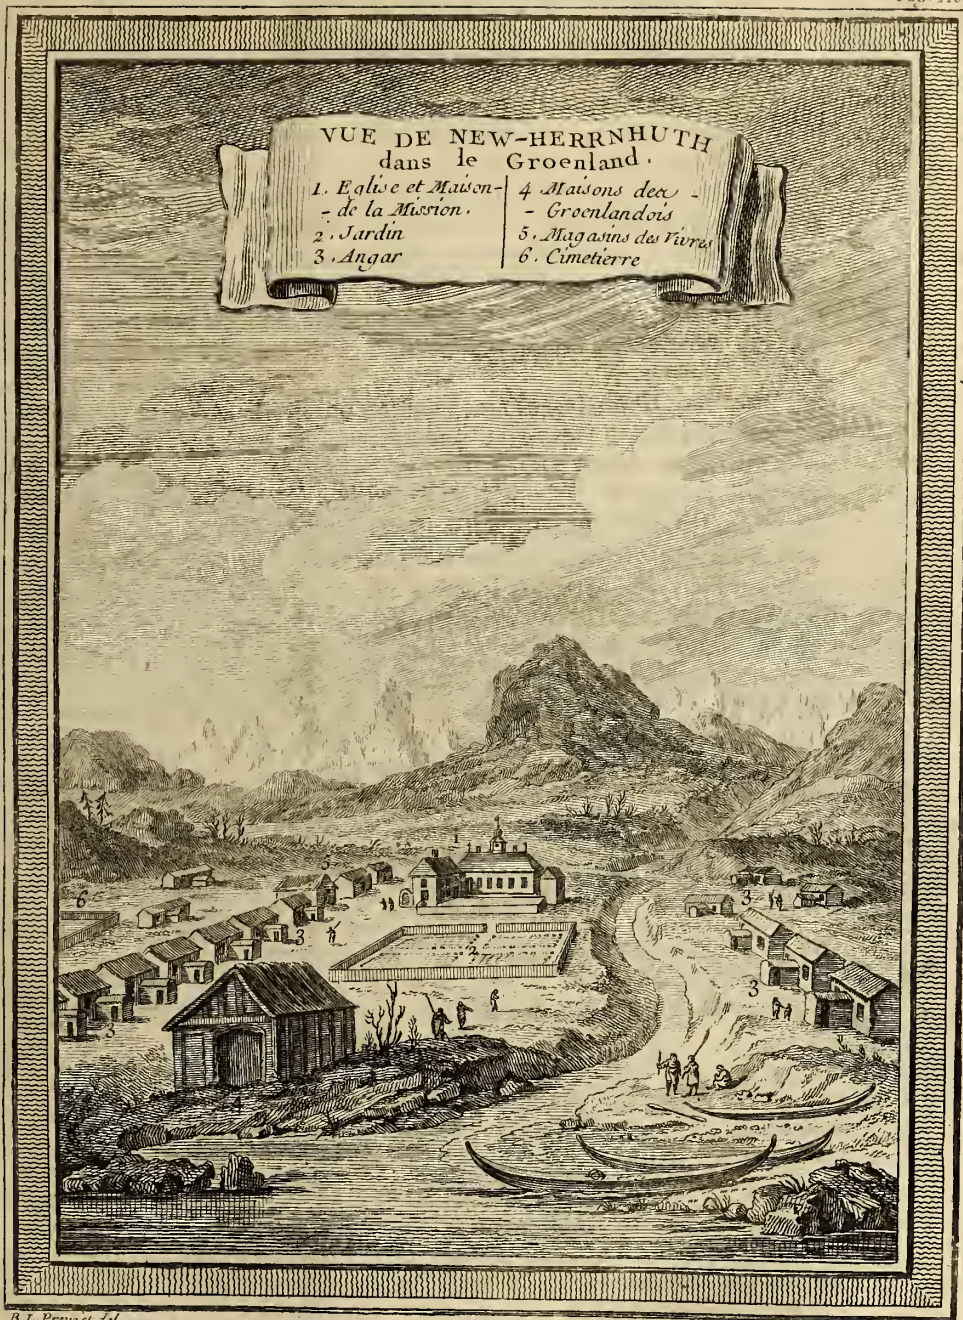 VUE DE NEW-HERRNHUTH
dans le Groenland.
1. Eglise et Maison-
- de la Mission.
2. Jardin
3. Angar
4. Maisons des -
- Groenlandois
5. Magasins des Vivres
6. Cimetierre
1
5
6
3
2
3
3
3
3
4
B.L. Prevost del.